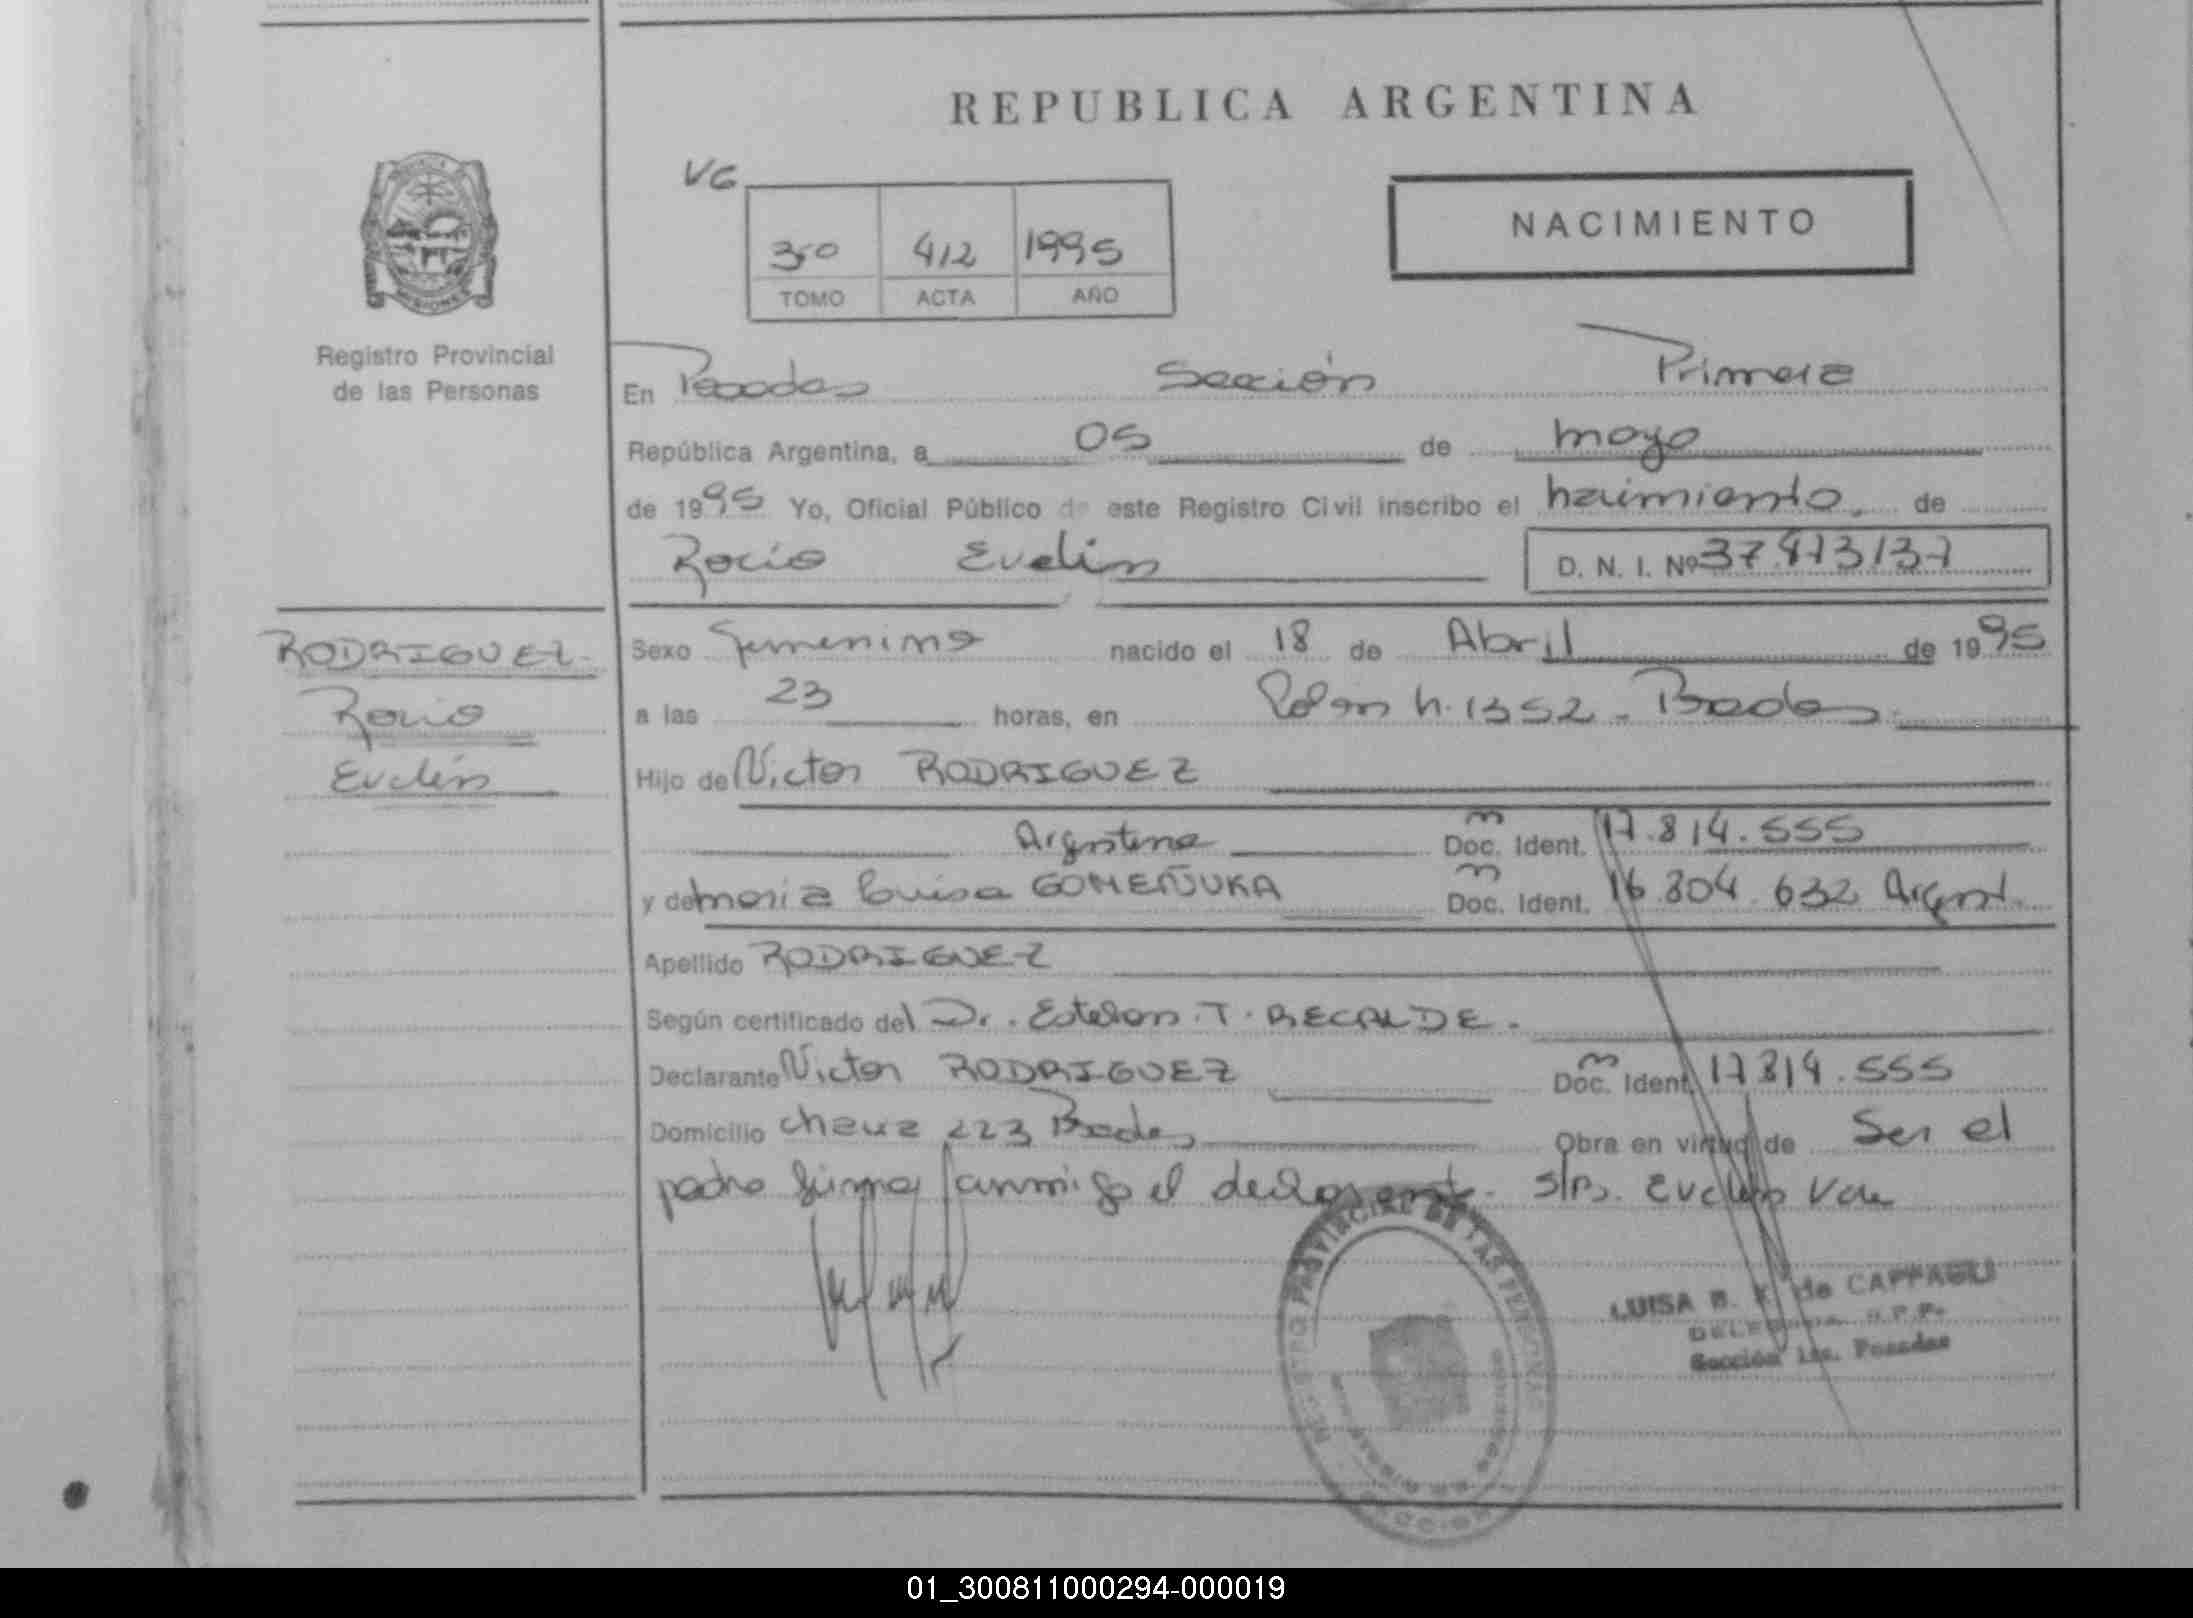 REPUBLICA ARGENTINA
VG
NACIMIENTO
3ro 412 1995
TOMO ACTA AÑO
Registro Provincial
de las Personas
En Posadas Sección Primera
República Argentina, a 05 de mayo
de 1995 Yo, Oficial Público de este Registro Civil inscribo el nacimiento de
Rocio Evelin D. N. I. Nº 37.473137
RODRIGUEZ
Rocio
Evelin
Sexo femenino nacido el 18 de Abril de 1995
a las 23 horas, en Colon h. 1352 - Posadas
Hijo de Victor RODRIGUEZ
Argentino Doc. Ident. 17.814.555
y de maria luisa GOMEÑUKA Doc. Ident. 16.804.632 Argent.
Apellido RODRIGUEZ
Según certificado del Dr. Esteban T. RECALDE.
Declarante Victor RODRIGUEZ Doc. Ident. 17814.555
Domicilio 223 Posadas Obra en virtud de Ser el
padre firma conmigo el declarante. S/Rs. Evelin Vale
REGISTRO PROVINCIAL DE LAS PERSONAS
LUISA B. K. de CAPPAGLI
DELEGADA R.P.P.
Sección 1ra. Posadas
01_300811000294-000019